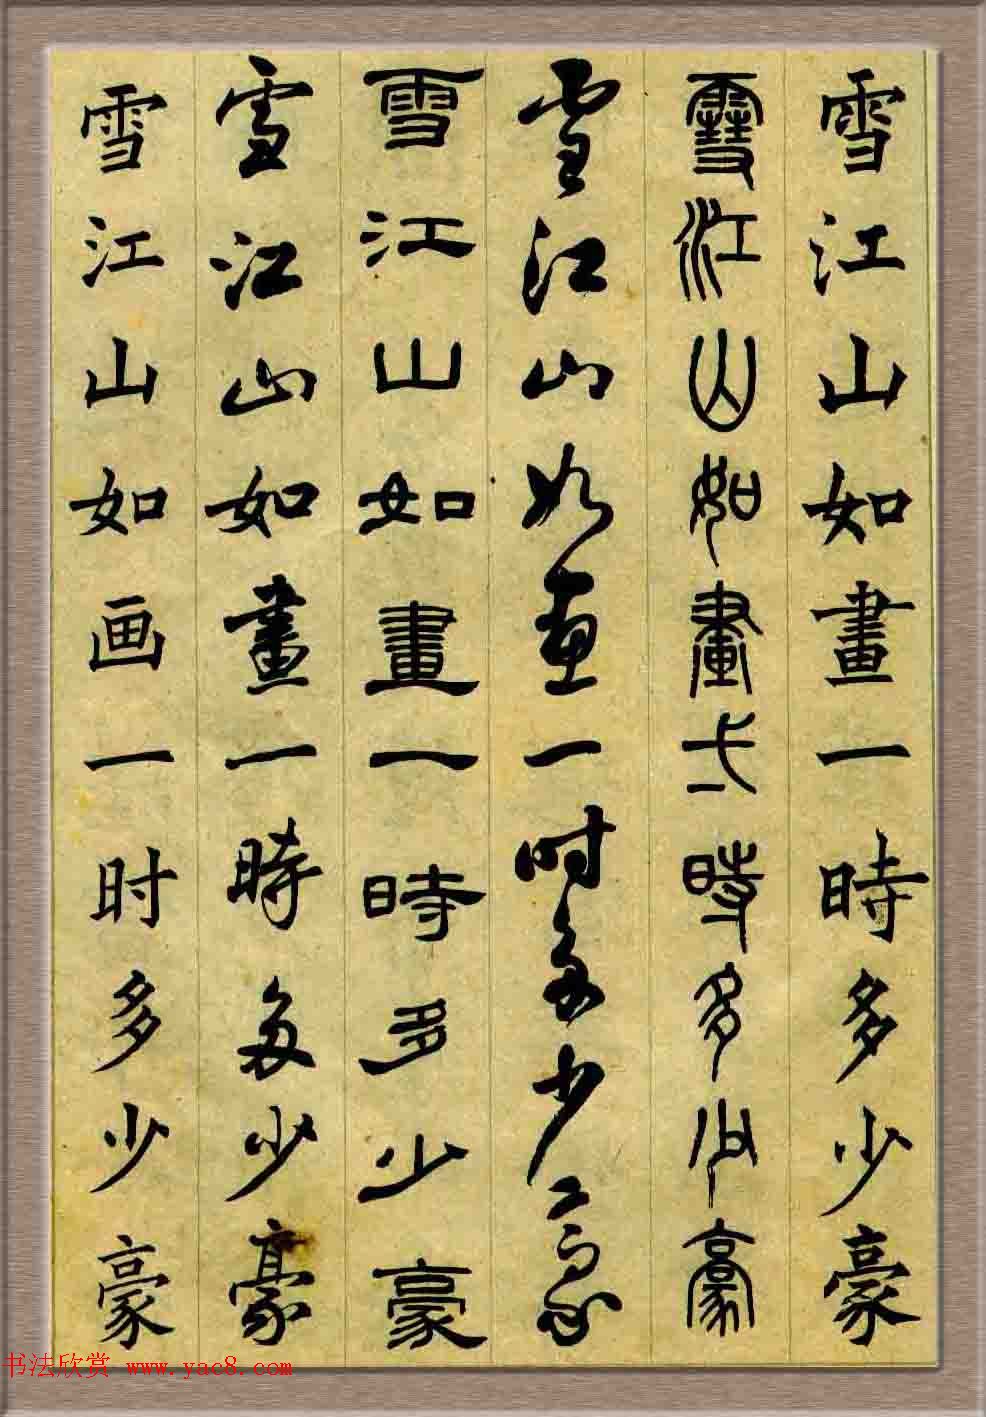 雪江山如畫一時多少豪
雪江山如畫一時多少豪
雪江山如畫一時多少豪
雪江山如畫一時多少豪
雪江山如畫一時多少豪
雪江山如画一时多少豪
书法欣赏 www.yac8.com